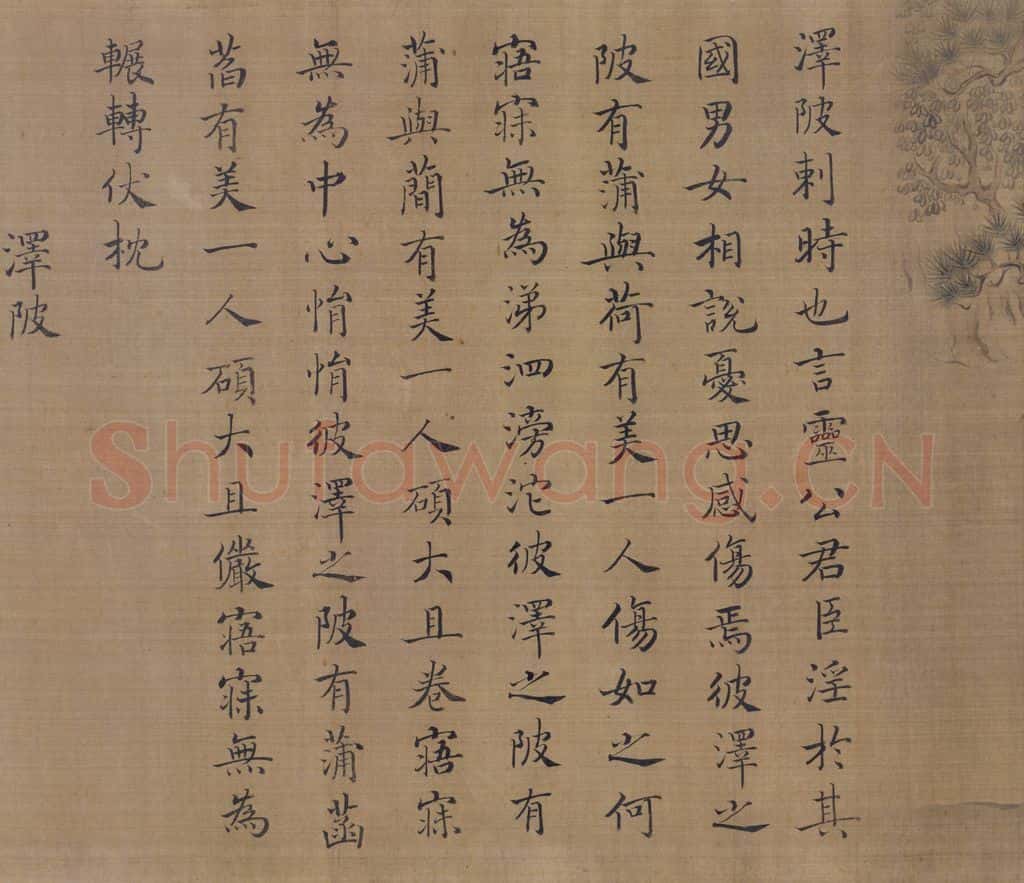 澤陂刺時也言靈公君臣淫於其
國男女相說憂思感傷焉彼澤之
陂有蒲與荷有美一人傷如之何
寤寐無為涕泗滂沱彼澤之陂有
蒲與蕳有美一人碩大且卷寤寐
無為中心悁悁彼澤之陂有蒲菡
萏有美一人碩大且儼寤寐無為
輾轉伏枕
澤陂
Shufawang.CN